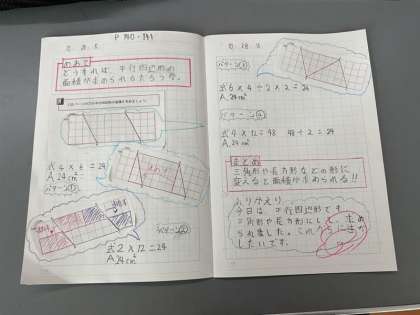 P 140-141
めあて
どうすれば、平行四辺形の
面積が求められるだろうか。
式 4 × 6 = 24
A. 24cm²
パターン①
パターン②
式 2 × 12 = 24
A. 24cm²
パターン③
式 6 × 4 ÷ 2 × 2 = 24
A. 24cm²
パターン④
式 4 × 12 = 48 48 ÷ 2 = 24
A. 24cm²
まとめ
三角形や長方形などの形に
変えると面積が求められる!!
ふりかえり
今日は、平行四辺形です
三角形や長方形にして、求め
られました。これからに生か
したいです。